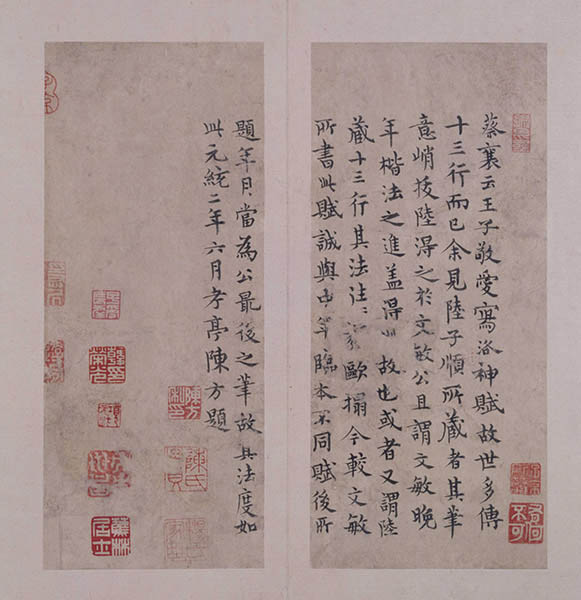 蔡襄云王子敬愛寫洛神賦故世多傳
十三行而已余見陸子順所藏者其筆
意峭技陸淂之於文敏公且謂文敏晚
年楷法之進盖得此故也或者又謂陸
藏十三行其法往〻歐搨今較文敏
所書此賦誠與中年臨本不同賦後所
題年月當為公最後之筆故其法度如
此元統二年六月孝亭陳方題
陳方私印